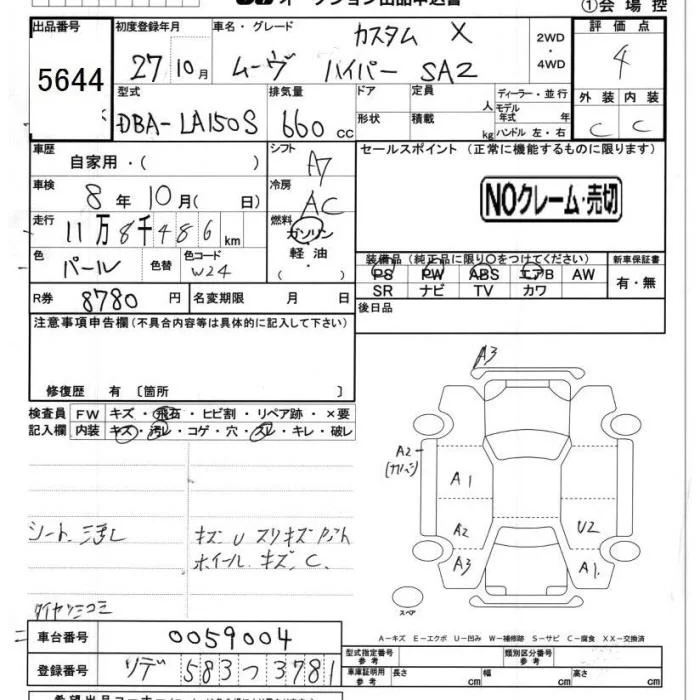 ①会場控
出品番号 5644
初度登録年月 27 10月
車名・グレード カスタム X
ムーヴ ハイパー SA2
2WD・4WD
評価点 4
外装 C 内装 C
型式 DBA-LA150S
排気量 660 cc
ドア 形状
定員 人 積載 kg
ディーラー・並行
モデル年式 年
ハンドル 左・右
車歴 自家用・( )
シフト A7
セールスポイント (正常に機能するものに限ります)
NOクレーム・売切
車検 8年 10月( 日)
冷房 AC
走行 11万8千486km
燃料 ガソリン・軽油・( )
色 パール 色替 色コード W24
装備品 (純正品に限り○をつけてください)
新車保証書
PS PW ABS エアB AW
SR ナビ TV カワ
有・無
R券 8780円 名変期限 月 日
後日品
注意事項申告欄 (不具合内容等は具体的に記入して下さい)
修復歴 有 〔箇所 〕
検査員記入欄
FW キズ・飛石・ヒビ割・リペア跡・×要
内装 キズ・汚レ・コゲ・穴・スレ・キレ・破レ
A3
A2
A1
A2
U2
A3
A1
スペア
シート
キズ U スリキズ
ホイール キズ、C.
A-キズ E-エクボ U-凹み W-補修跡 S-サビ C-腐食 XX-交換済
車台番号 0059004
型式指定番号 参考
類別区分番号 参考
登録番号 ソデ 583 つ 3781
車庫証明用 参考 長さ cm 幅 cm 高さ cm